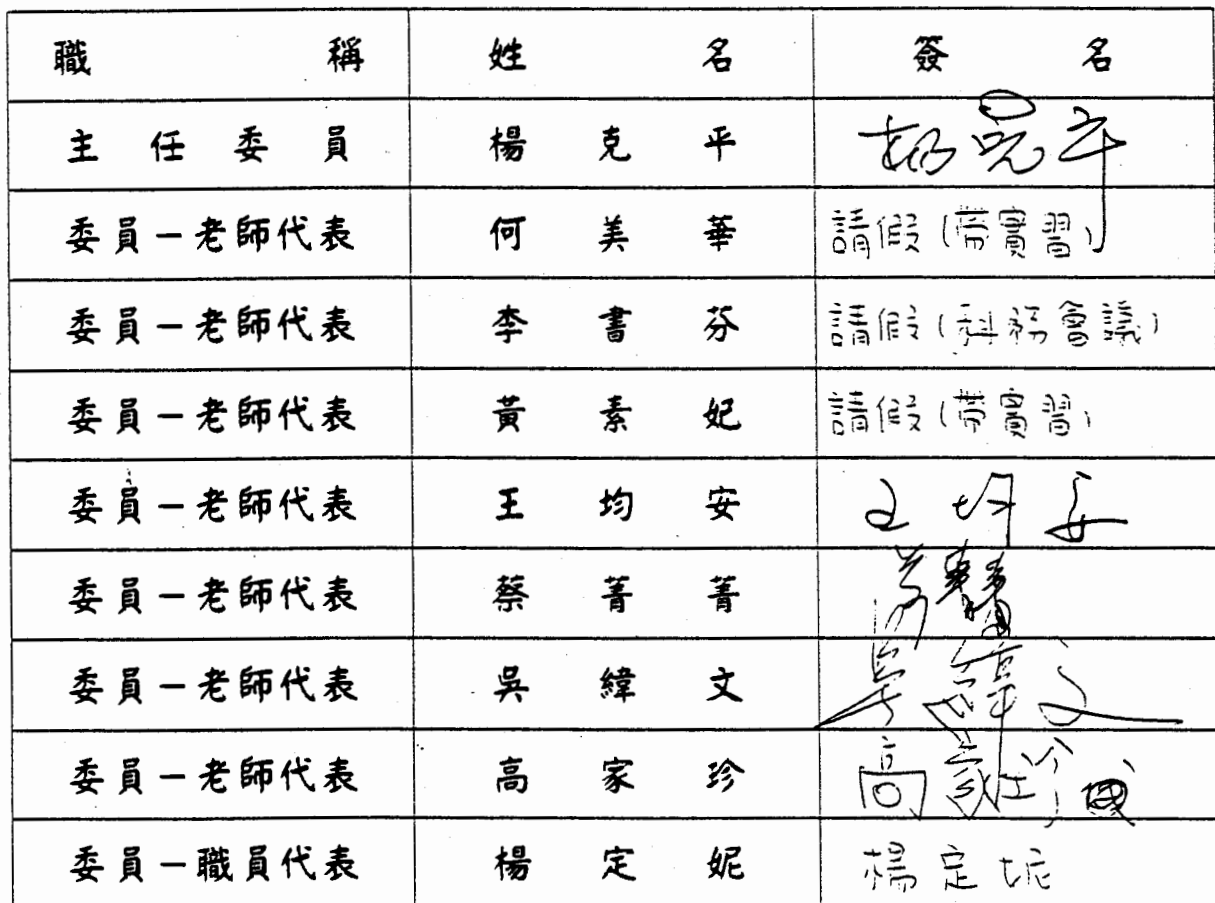 職稱 姓名 簽名
主任委員 楊克平 楊克平
委員－老師代表 何美華 請假(帶實習)
委員－老師代表 李書芬 請假(科務會議)
委員－老師代表 黃素妃 請假(帶實習)
委員－老師代表 王均安 王均安
委員－老師代表 蔡菁菁
委員－老師代表 吳緯文 吳緯文
委員－老師代表 高家珍 高家珍
委員－職員代表 楊定妮 楊定妮